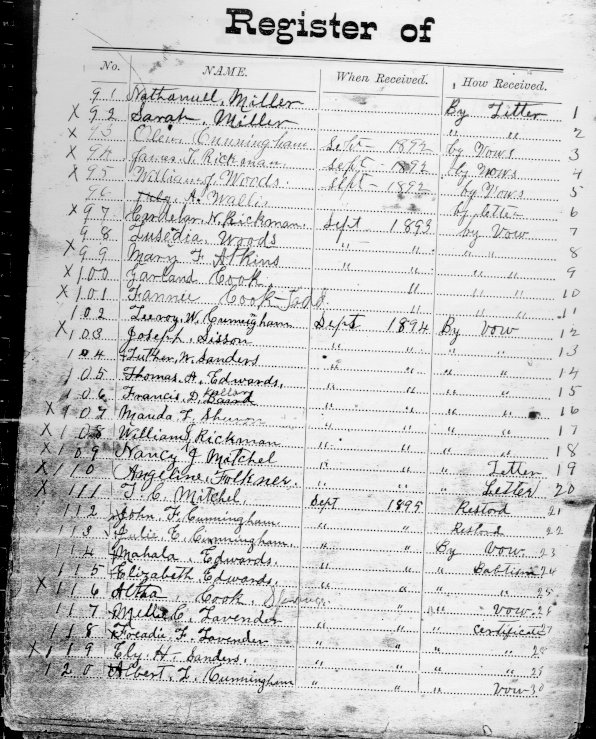 Register of
No. NAME. When Received. How Received.
91 Nathanuell. Miller By Letter 1
X 92 Sarah. Miller " " 2
X 93 Cunningham Sept - 1892 by Vows 3
X 94 James Rickman. Sept - 1892 by Vows 4
X 95 William J. Woods. Sept - 1892 by Vows 5
96 A. Wallis by letter 6
X 97 N. Rickman. Sept 1893 by Vow 7
98 Woods " " " " 8
X 99 Mary F. Atkins " " " 9
X 100 Garland Cook " " " 10
X 101 Fannie Cook-Todd " " " 11
102 Leeroy. W. Cunnigham Sept 1894 By Vow 12
X 103 Joseph. Sisson " " " " 13
104 Luther. W. Sanders " " " " 14
105 Thomas. A. Edwards. " " " " 15
106 Francis. D. Baird " " " " 16
X 107 Mauda. F. " " " " 17
X 108 William Rickman " " " " 18
X 109 Nancy J Mitchel " " " Letter 19
X 110 Angeline. Folkner. " " " Letter 20
X 111 T. C. Mitchel. Sept 1895 Restord 21
112 John. F. Cunningham " " Restord 22
113 Julie. E. Cunningham. " " By Vow 23
114 Mahala. Edwards. " " " 24
115 Elizabeth Edwards. " " " " 25
X 116 Altha. Cook. " " " Vow 26
117 Millie C. Lavender " " Certificate 27
118 F. Lavender " " " " 28
X 119 Ely. H. Sanders. " " " " 29
120 Albert. L. Cunningham " " Vow 30